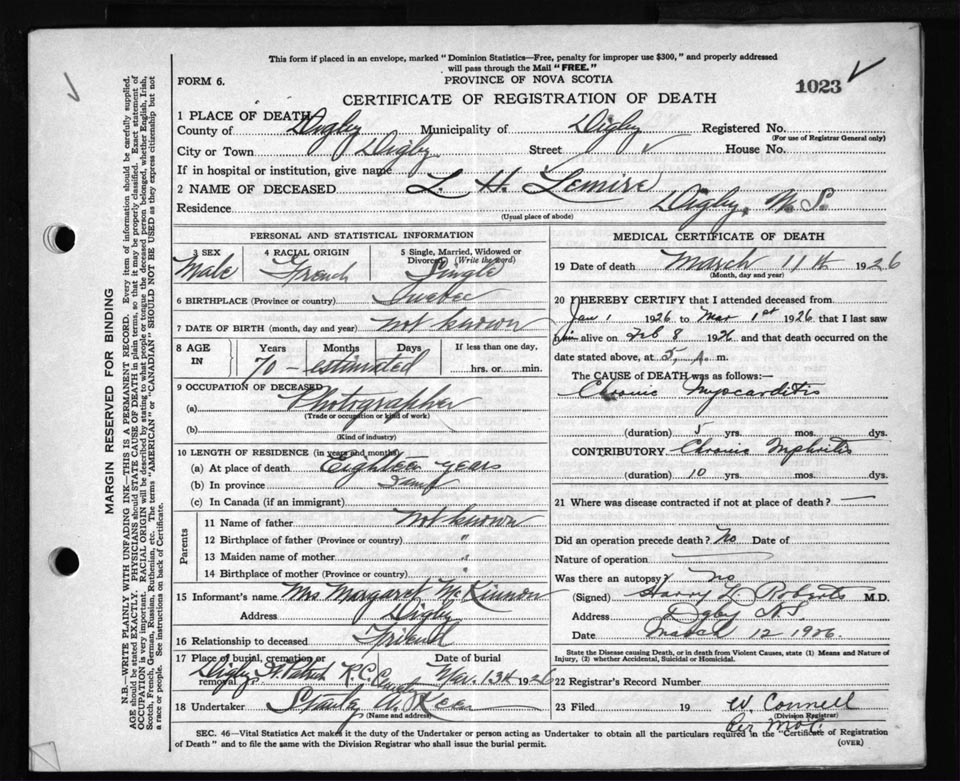 This form if placed in an envelope, marked "Dominion Statistics—Free, penalty for improper use $300," and properly addressed
will pass through the Mail "FREE."
FORM 6.
PROVINCE OF NOVA SCOTIA
1023
CERTIFICATE OF REGISTRATION OF DEATH
1 PLACE OF DEATH
County of Digby Municipality of Digby Registered No.
(For use of Registrar General only)
City or Town Digby Street House No.
If in hospital or institution, give name
2 NAME OF DECEASED L. H. Lemire
Residence Digby, N. S.
(Usual place of abode)
PERSONAL AND STATISTICAL INFORMATION
3 SEX 4 RACIAL ORIGIN 5 Single, Married, Widowed or
Divorced (Write the word)
Male French Single
6 BIRTHPLACE (Province or country) Quebec
7 DATE OF BIRTH (month, day and year) not known
8 AGE IN Years Months Days If less than one day,
70 – estimated hrs. or min.
9 OCCUPATION OF DECEASED
(a) Photographer
(Trade or occupation or kind of work)
(b)
(Kind of industry)
10 LENGTH OF RESIDENCE (in years and months)
(a) At place of death Eighteen years
(b) In province
(c) In Canada (if an immigrant)
Parents
11 Name of father not known
12 Birthplace of father (Province or country) "
13 Maiden name of mother "
14 Birthplace of mother (Province or country) "
15 Informant's name Mrs Margaret McKinnon
Address Digby
16 Relationship to deceased Friend
17 Place of burial, cremation or removal Date of burial
Digby St Patrick R.C. Cemetery Mar. 13th 1926
18 Undertaker
(Name and address)
MEDICAL CERTIFICATE OF DEATH
19 Date of death March 11th 1926
(Month, day and year)
20 I HEREBY CERTIFY that I attended deceased from
Jan 1 1926 to Mar 1st 1926 that I last saw
him alive on Feb 8 1926 and that death occurred on the
date stated above, at 5 A. m.
The CAUSE of DEATH was as follows:—
Chronic Myocarditis
(duration) 5 yrs. mos. dys.
CONTRIBUTORY Chronic Nephritis
(duration) 10 yrs. mos. dys.
21 Where was disease contracted if not at place of death? —
Did an operation precede death? No Date of
Nature of operation
Was there an autopsy? no
(Signed) Harry Roberts M.D.
Address Digby N.S.
Date March 12 1926.
State the Disease causing Death, or in death from Violent Causes, state (1) Means and Nature of
Injury, (2) whether Accidental, Suicidal or Homicidal.
22 Registrar's Record Number
23 Filed 19 W. Connell
(Division Registrar)
Per
SEC. 46—Vital Statistics Act makes it the duty of the Undertaker or person acting as Undertaker to obtain all the particulars required in the "Certificate of Registration
of Death" and to file the same with the Division Registrar who shall issue the burial permit.
(OVER)
MARGIN RESERVED FOR BINDING
N.B.—WRITE PLAINLY WITH UNFADING INK—THIS IS A PERMANENT RECORD. Every item of information should be carefully supplied.
AGE should be stated EXACTLY. PHYSICIANS should STATE CAUSE OF DEATH in plain terms, so that it may be properly classified. Exact statement of
OCCUPATION is very important. RACIAL ORIGIN will be described by stating to what people or tongue the deceased person belonged, whether English, Irish,
Scotch, French, German, Russian, Ruthenian, etc. The terms "AMERICAN" or "CANADIAN" SHOULD NOT BE USED as they express citizenship but not
a race or people. See instructions on back of Certificate.